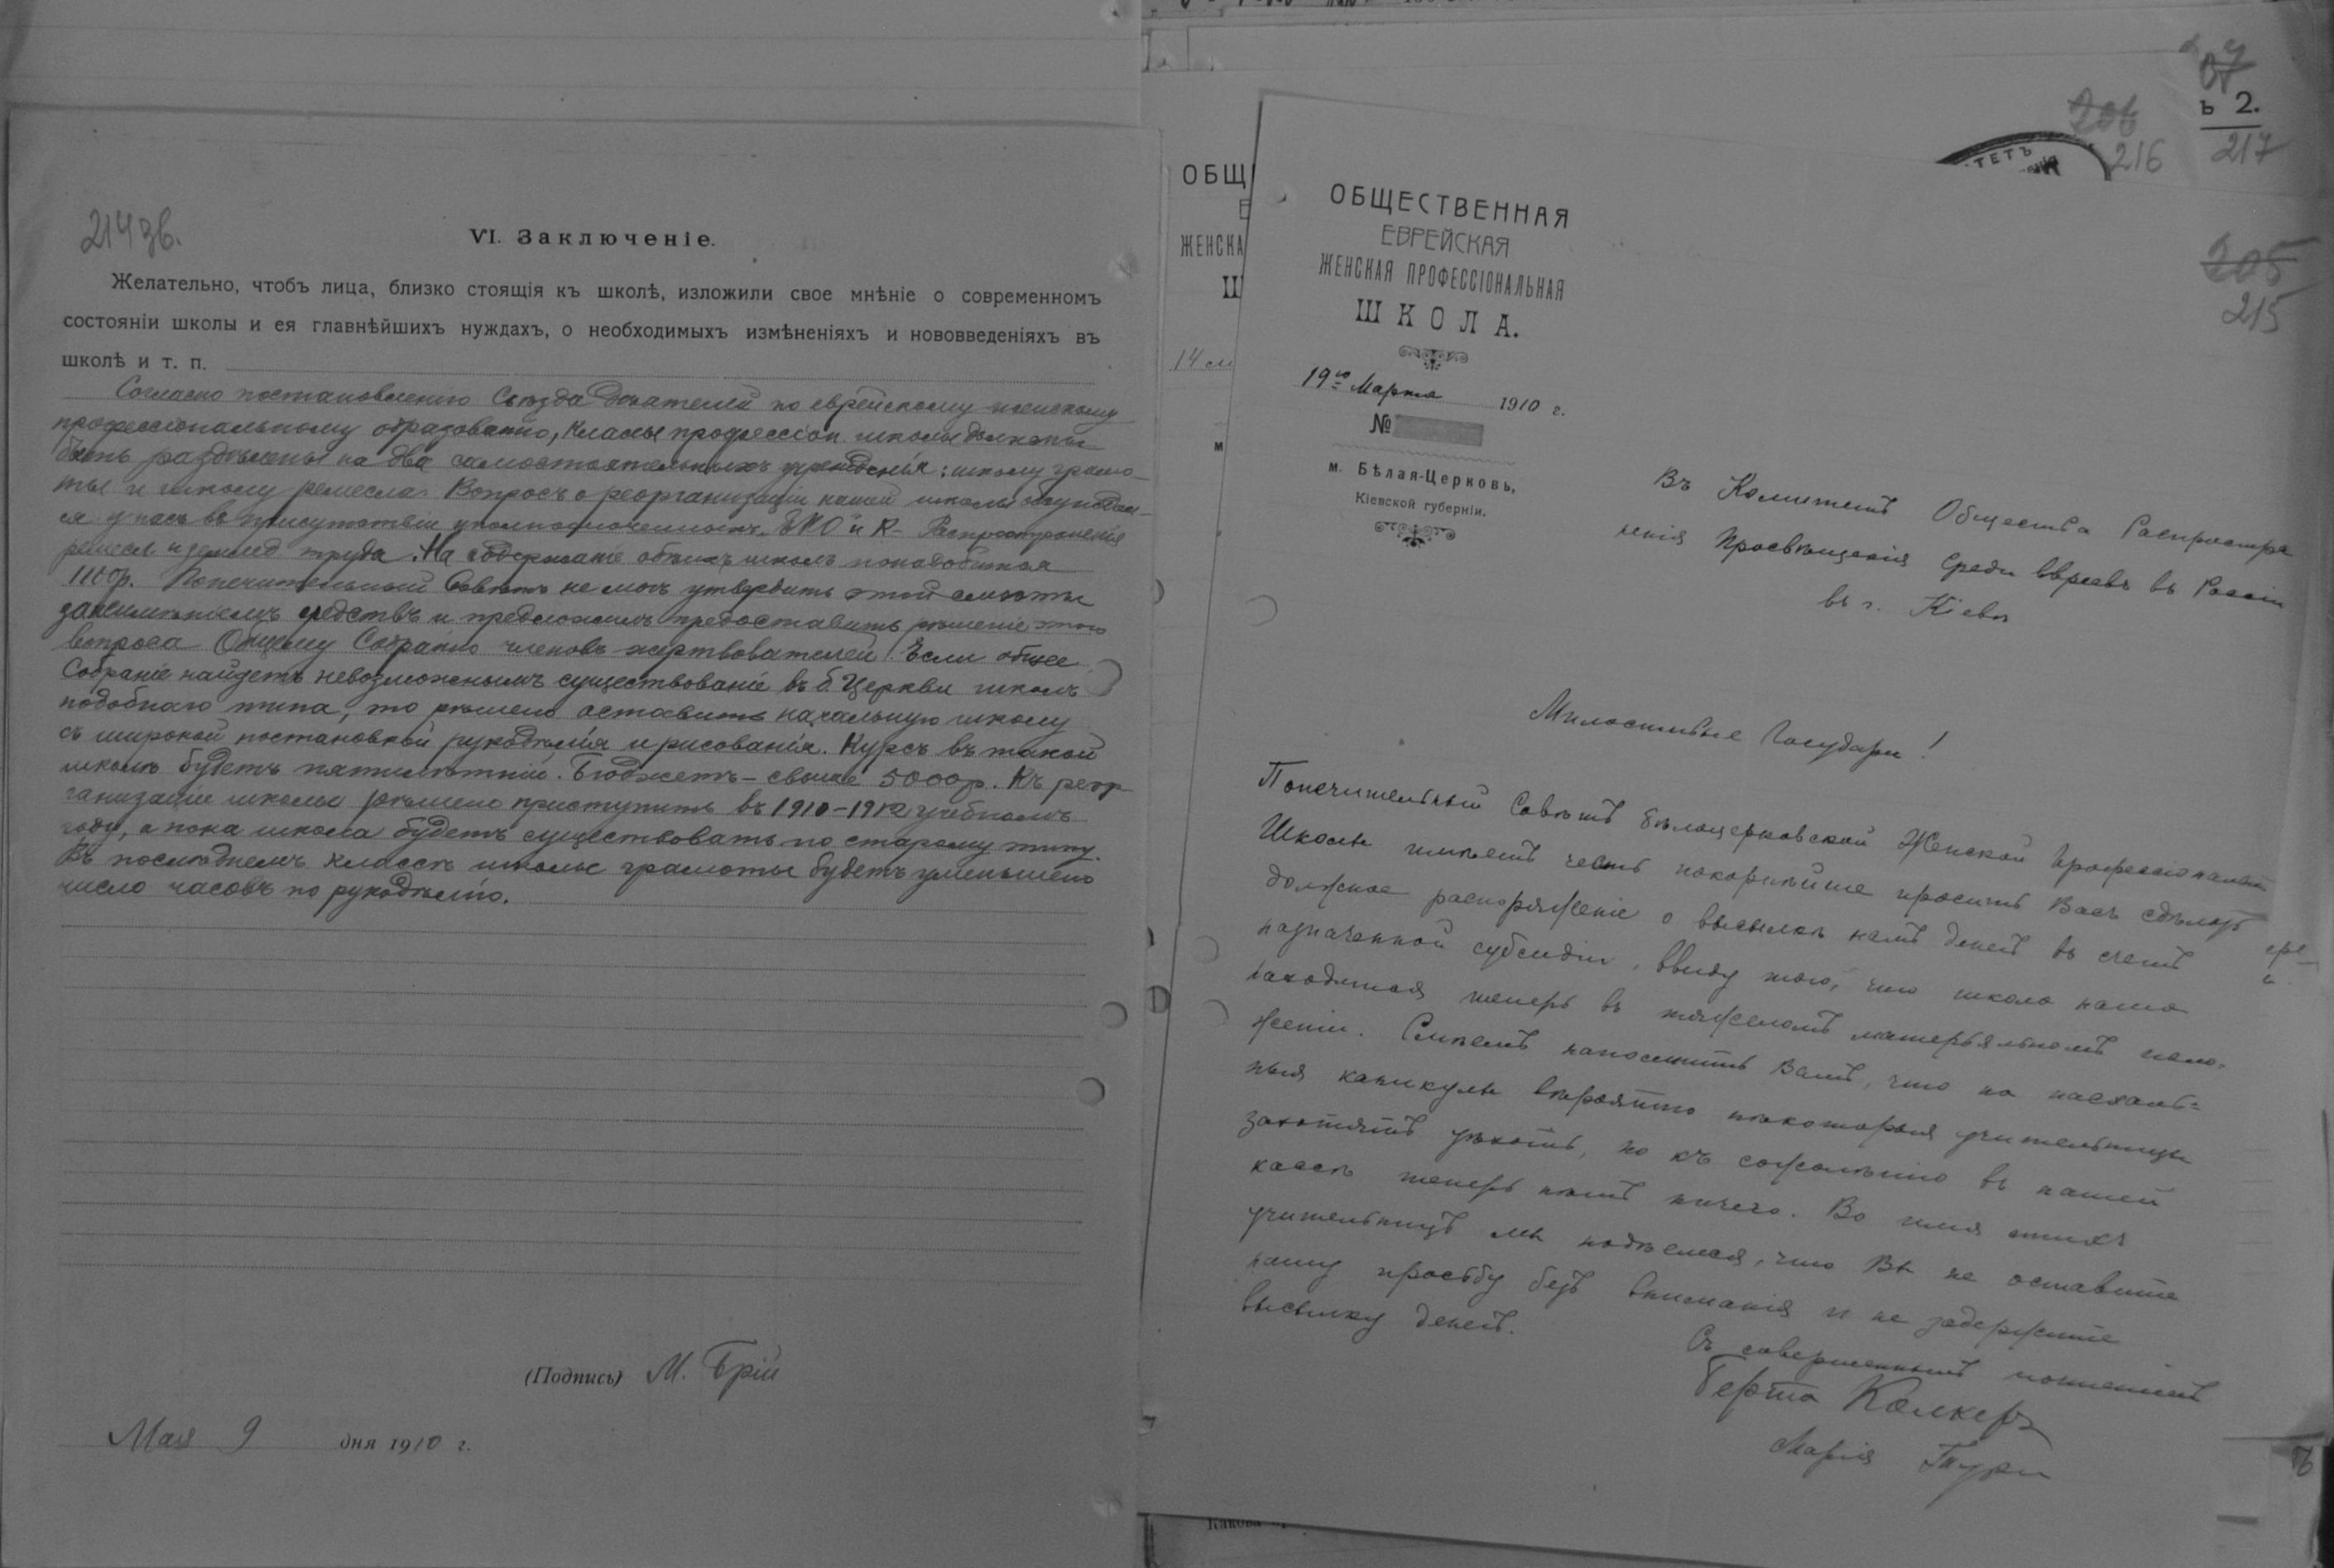 214 зв.
VI. Заключеніе.
Желательно, чтобъ лица, близко стоящія къ школѣ, изложили свое мнѣніе о современномъ
состояніи школы и ея главнѣйшихъ нуждахъ, о необходимыхъ измѣненіяхъ и нововведеніяхъ въ
школѣ и т. п.
Согласно постановленію Съѣзда деятелей по еврейскому женскому
профессіональному образованію, классы профессіон. школы должны
быть раздѣлены на два самостоятельныхъ учрежденія: школу грамо-
ты и школу ремесла. Вопросъ о реорганизаціи нашей школы обсуждал-
ся у насъ въ присутствіи уполномоченныхъ Распространенія
ремесл. и землед. труда. На содержаніе обѣихъ школъ понадобится
Попечительный Совѣтъ не могъ утвердить этой смѣты
за неимѣніемъ средствъ и предложилъ предоставить рѣшеніе этого
вопроса Общему Собранію членовъ жертвователей. Если общее
Собраніе найдетъ невозможнымъ существованіе въ Б. Церкви школъ
подобнаго типа, то рѣшено оставить начальную школу
съ широкой постановкой рукодѣлія и рисованія. Курсъ въ такой
школѣ будетъ пятилѣтній. Бюджетъ – свыше 5000 р. Къ реор-
ганизаціи школы рѣшено приступить въ 1910–1912 учебномъ
году, а пока школа будетъ существовать по старому типу.
Въ послѣднемъ классѣ школы грамоты будетъ уменьшено
число часовъ по рукодѣлію.
(Подпись) М. Брій
Мая 9 дня 1910 г.
ъ 2.
206
216
217
205
215
ТЕТЪ
ОБЩ
Е
ЖЕНСКА
Ш
14
м
ОБЩЕСТВЕННАЯ
ЕВРЕЙСКАЯ
ЖЕНСКАЯ ПРОФЕССІОНАЛЬНАЯ
ШКОЛА.
19го Марта 1910 г.
№
м. Бѣлая-Церковь,
Кіевской губерніи.
Въ Комитетъ Общества Распростра
ненія Просвѣщенія Среди Евреевъ въ Россіи
въ г. Кіевѣ
Милостивые Государи!
Попечительный Совѣтъ Бѣлоцерковской Женской Профессіональной
Школы имѣетъ честь покорнѣйше просить Васъ сдѣлать
должное распоряженіе о высылкѣ намъ денегъ въ счетъ
назначенной субсидіи, ввиду того, что школа наша
находится теперь въ тяжеломъ матерьяльномъ поло-
женіи. Смѣемъ напомнить Вамъ, что на пасхаль=
ныя каникулы вѣроятно нѣкоторыя учительницы
захотятъ уѣхать, но къ сожалѣнію въ нашей
кассѣ теперь нѣтъ ничего. Во имя этихъ
учительницъ мы надѣемся, что Вы не оставите
нашу просьбу безъ вниманія и не задержите
высылку денегъ.
Съ совершеннымъ почтеніемъ
Берта Калкеръ
Марія
Какова